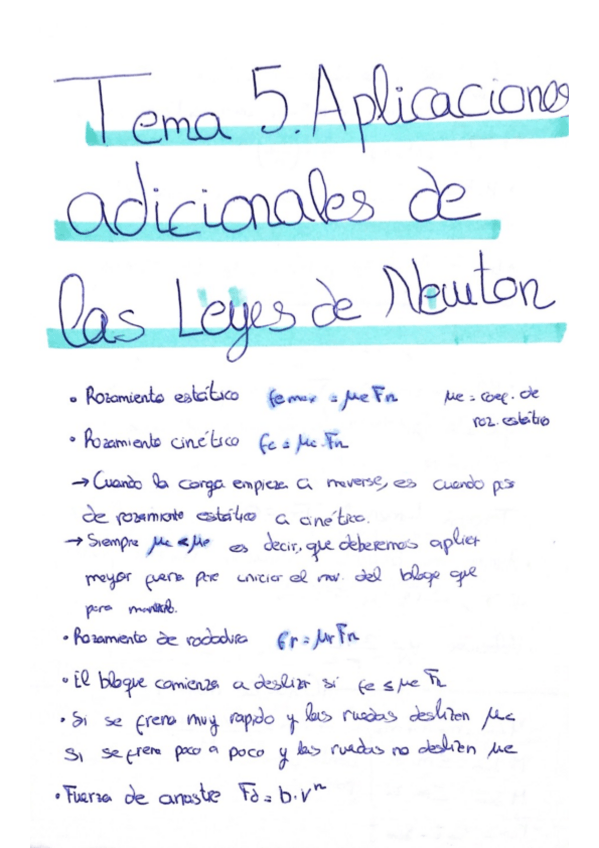 Tema 5. Aplicaciones
adicionales de
las Leyes de Newton
• Rozamiento estático fe max = μe Fn μe = coef. de
roz. estático
• Rozamiento cinético fc = μc · Fn
→ Cuando la carga empieza a moverse, es cuando pasa
de rozamiento estático a cinético.
→ Siempre μc < μe es decir, que deberemos aplicar
mayor fuerza para iniciar el mov. del bloque que
para mantenerlo.
• Rozamiento de rodadura fr = μr Fn
• El bloque comienza a deslizar si fe ≤ μe Fn
• Si se frena muy rapido y las ruedas deslizan μc
Si se frena poco a poco y las ruedas no deslizan μe
• Fuerza de arrastre Fd = b · vⁿ